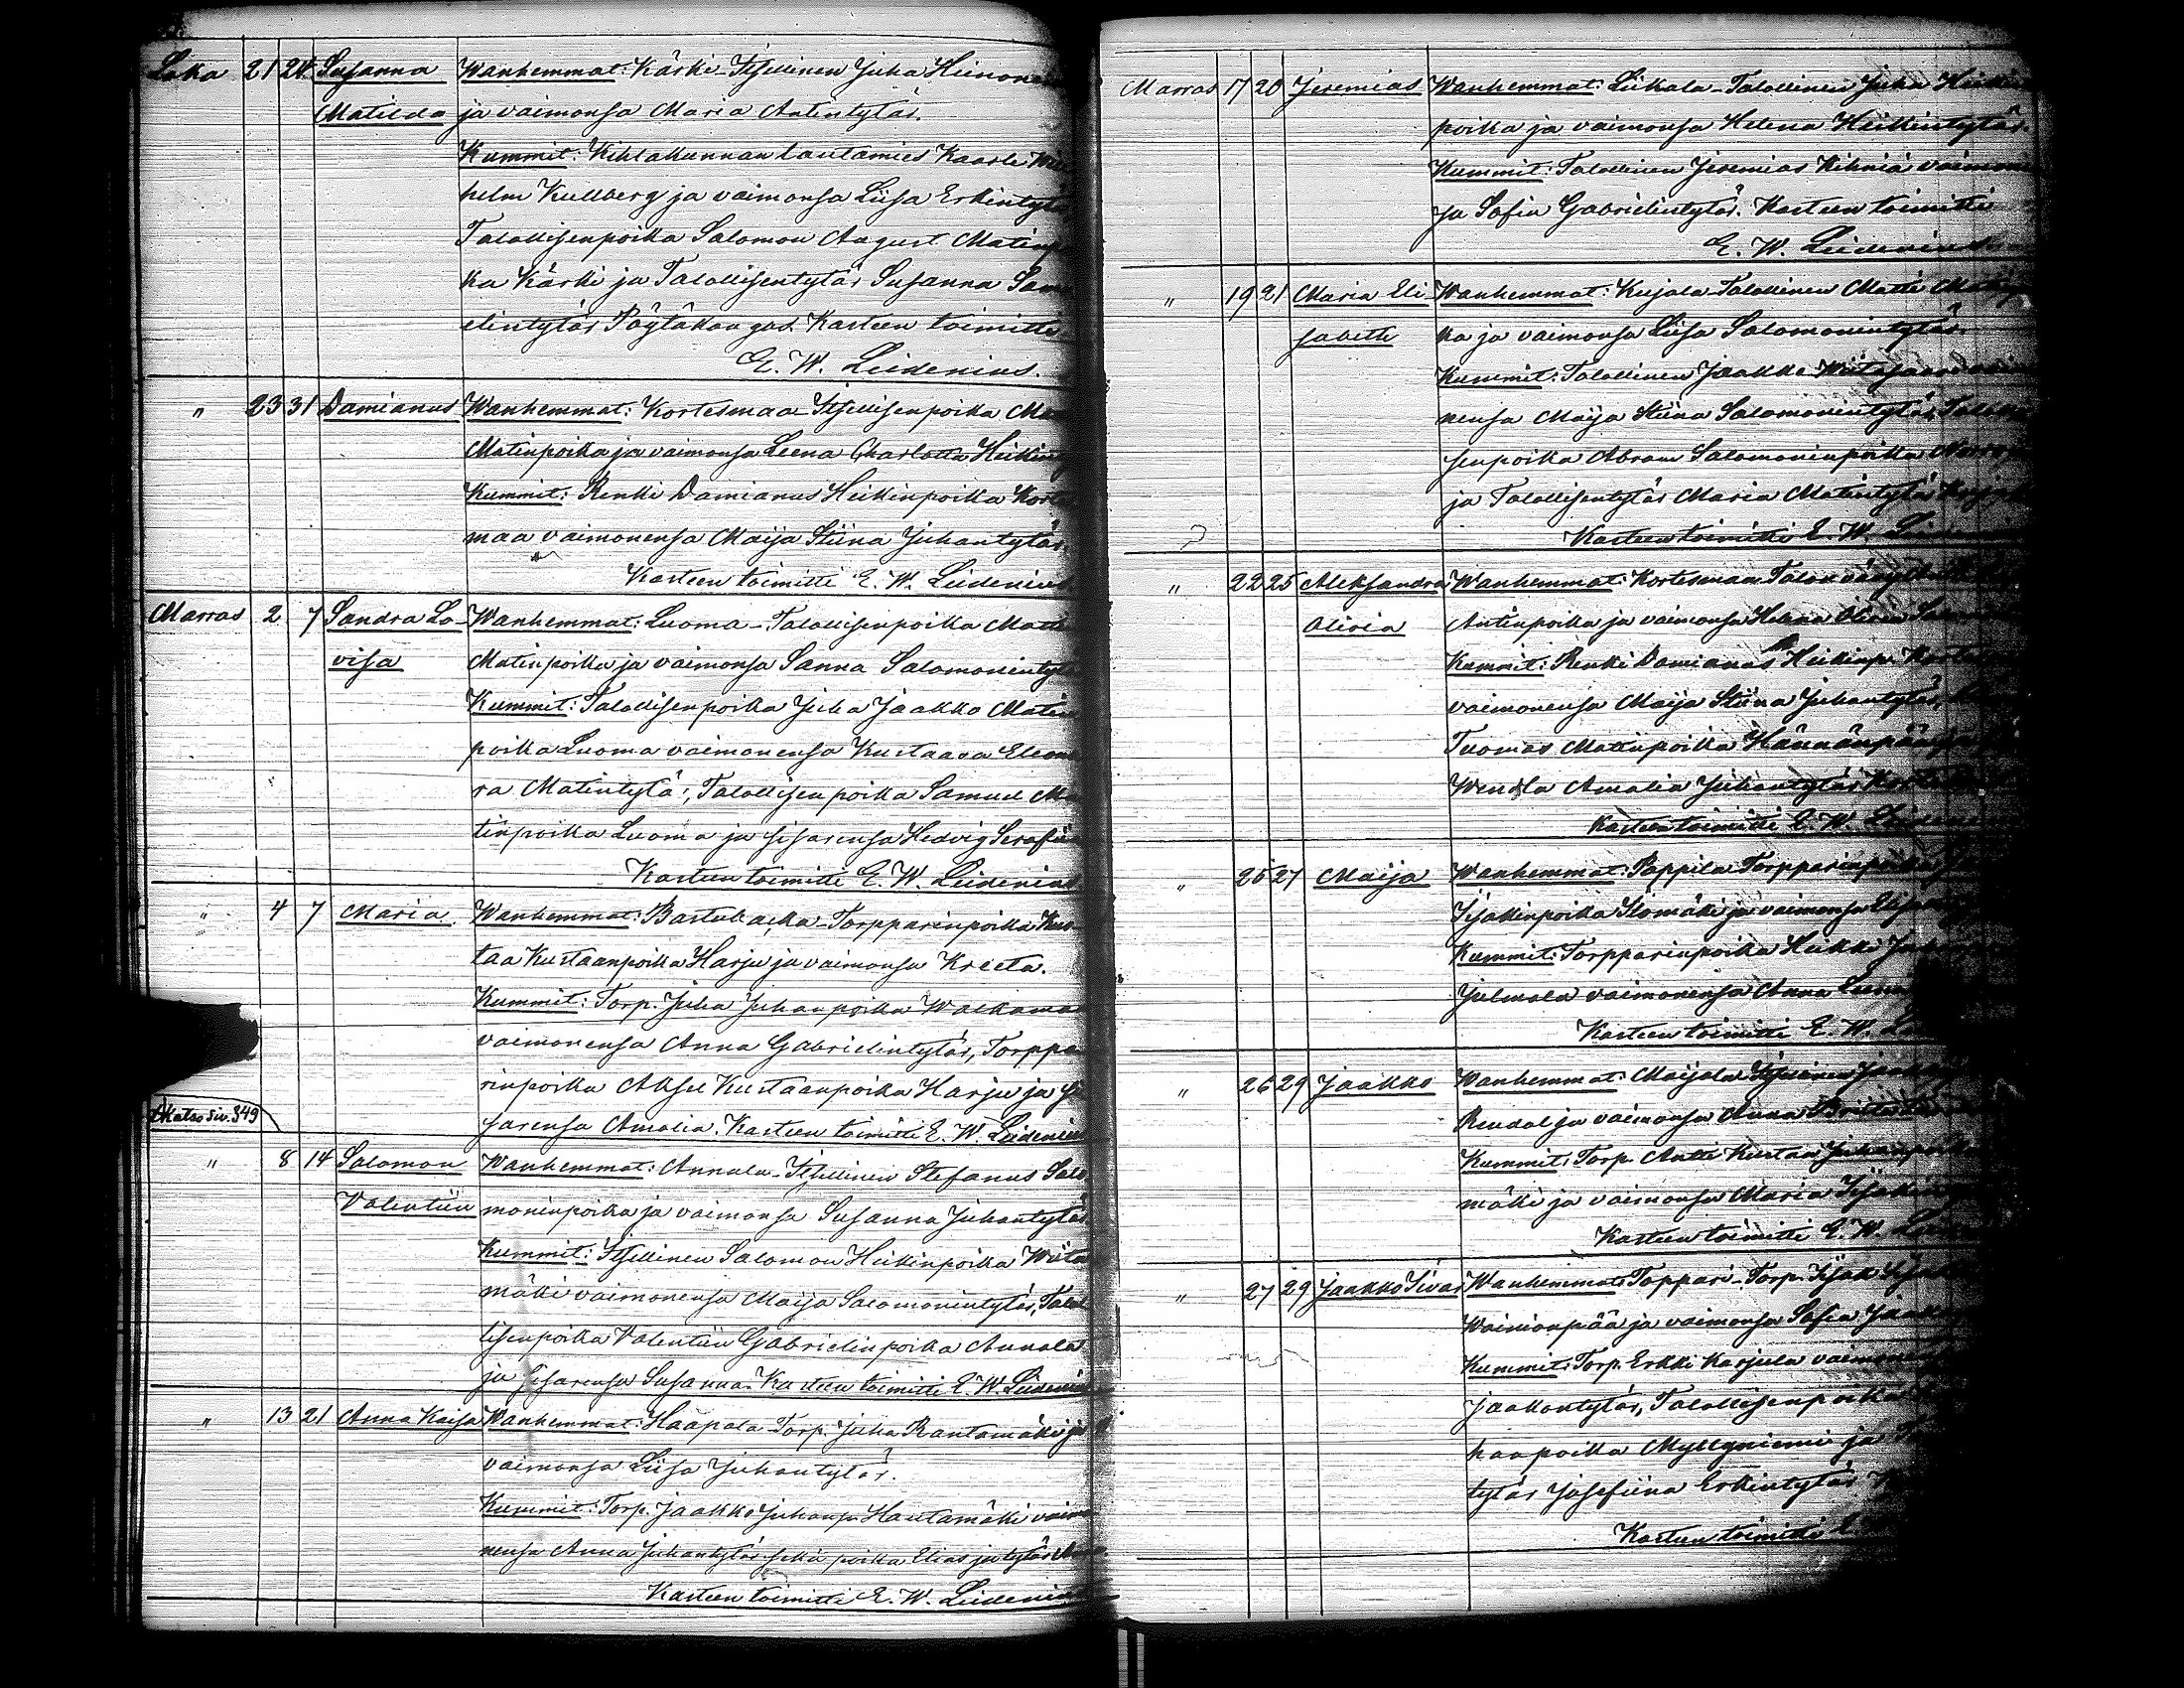 Loka 21 24 Susanna Wanhemmat: Kärki-Itsellinen Juha Heinonen
Matilda ja vaimonsa Maria Antintytär.
Kummit: Kihlakunnan lautamies Kaarle Wil
helm Kullberg ja vaimonsa Liisa Erkintytär,
Talollisenpoika Salomon August Matinpoi
ka Kärki ja Talollisentytär Susanna Samu
elintytär Pöytäkangas. Kasteen toimitti
E. W. Lidenius.
" 23 31 Damianus Wanhemmat: Kortesmaa-Itsellisenpoika
Matinpoika ja vaimonsa Leena Charlotta
Kummit: Renki Damianus Heikinpoika Kortes
maa vaimonensa Maija Stiina Juhantytär.
Kasteen toimitti E. W. Lidenius
Marras 2 7 Sandra Lo- Wanhemmat: Luoma-Talollisenpoika Matti
visa Matinpoika ja vaimonsa Sanna Salomonintytär
Kummit: Talollisenpoika Juha Jaakko Matin
poika Luoma vaimonensa Kustaava Eleono
ra Matintytär, Talollisenpoika Samuel Ma
tinpoika Luoma ja sisarensa Hedvig Serafii
Kasteen toimitti E. W. Lidenius
" 4 7 Maria. Wanhemmat: Bastubacka-Torpparinpoika Kus-
taa Kustaanpoika Harju ja vaimonsa Kreeta.
Kummit: Torp. Juha Juhanpoika Walkama
vaimonensa Anna Gabrielintytär, Torppa
rinpoika Aksel Kustaanpoika Harju ja si
sarensa Amalia. Kasteen toimitti E. W. Lidenius
Katso siv. 349
" 8 14 Salomon Wanhemmat: Annala-Itsellinen Stefanus Salo
Valentiin moninpoika ja vaimonsa Susanna Juhantytär
Kummit: Itsellinen Salomon Heikinpoika Wiita
mäki vaimonensa Maija Salomonintytär, Talol
lisenpoika Valentiin Gabrielinpoika Annala
ja sisarensa Susanna. Kasteen toimitti E. W. Lidenius
" 13 21 Anna Kaisa Wanhemmat: Haapala-Torp. Juha Rantamäki ja
vaimonsa Liisa Juhantytär.
Kummit: Torp. Jaakko Juhanp. Hautamäki vaimo
nensa Anna Juhantytär sekä poika Elias ja tytär
Kasteen toimitti E. W. Lidenius
Marras 17 20 Jeremias Wanhemmat: Liikala-Talollinen Juha Heikin
poika ja vaimonsa Helena Heikintytär.
Kummit: Talollinen Jeremias Kihniä vaimonen
sa Sofia Gabrielintytär. Kasteen toimitti
E. W. Lidenius
" 19 21 Maria Eli- Wanhemmat: Kujala-Talollinen Matti
sabeth ka ja vaimonsa Liisa Salomonintytär.
Kummit: Talollinen Jaakko
nensa Maija Stiina Salomonintytär, Taloli
senpoika Abram Salomoninpoika
ja Talollisentytär Maria Matintytär
Kasteen toimitti E. W. Li
" 22 25 Aleksandra Wanhemmat: Kortesmaa
Olivia Antinpoika ja vaimonsa Helena Olivia
Kummit: Renki Damianus Heikinp.
vaimonensa Maija Stiina Juhantytär,
Tuomas Matinpoika
Wendla Amalia Juhantytär
Kasteen toimitti E. W. Lidenius
" 25 27 Maija Wanhemmat: Pappila Torpparinpoika
Isakinpoika Ilomäki ja vaimonsa
Kummit: Torpparinpoika Heikki
Julmala vaimonensa Anna
Kasteen toimitti E. W.
" 26 29 Jaakko Wanhemmat: Maijala Itsellinen
Rendal ja vaimonsa Anna
Kummit: Torp. Antti Kustaa Juhanpoika
mäki ja vaimonsa Maria
Kasteen toimitti E. W.
" 27 29 Jaakko Iivar Wanhemmat: Toppari-Torp. Isak
Wainionpää ja vaimonsa Sofia
Kummit: Torp. Erkki Karjula
Jaakontytär, Talollisenpoika
hanpoika Myllyniemi ja
tytär Josefiina Erkintytär
Kasteen toimitti E